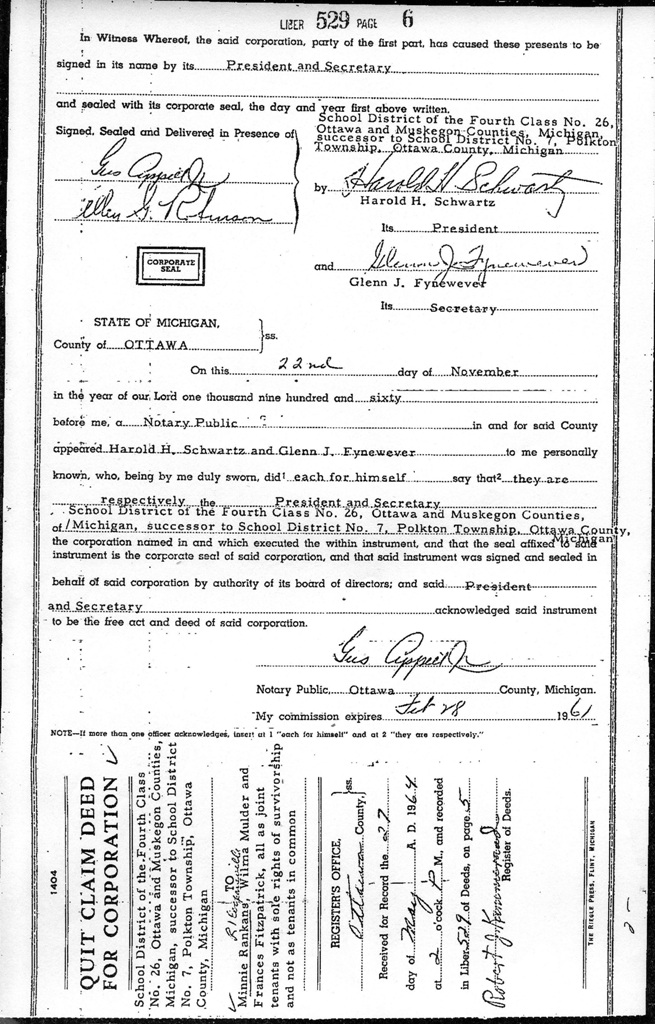 LIBER 529 PAGE 6
In Witness Whereof, the said corporation, party of the first part, has caused these presents to be
signed in its name by its President and Secretary
and sealed with its corporate seal, the day and year first above written.
School District of the Fourth Class No. 26,
Signed, Sealed and Delivered in Presence of Ottawa and Muskegon Counties, Michigan,
successor to School District No. 7, Polkton
Township, Ottawa County, Michigan
Gus Appel Jr
by Harold H Schwartz
Harold H. Schwartz
Ellen G. Robinson
Its President
CORPORATE
SEAL
and Glenn J. Fynewever
Glenn J. Fynewever
Its Secretary
STATE OF MICHIGAN,
County of OTTAWA }ss.
On this 22nd day of November
in the year of our Lord one thousand nine hundred and sixty
before me, a Notary Public in and for said County
appeared Harold H. Schwartz and Glenn J. Fynewever to me personally
known, who, being by me duly sworn, did¹ each for himself say that² they are
respectively the President and Secretary
School District of the Fourth Class No. 26, Ottawa and Muskegon Counties,
of/Michigan, successor to School District No. 7, Polkton Township, Ottawa County,
Michigan
the corporation named in and which executed the within instrument, and that the seal affixed to said
instrument is the corporate seal of said corporation, and that said instrument was signed and sealed in
behalf of said corporation by authority of its board of directors; and said President
and Secretary acknowledged said instrument
to be the free act and deed of said corporation.
Gus Appel Jr
Notary Public, Ottawa County, Michigan.
My commission expires Feb 28 1961
NOTE—If more than one officer acknowledges, insert at 1 "each for himself" and at 2 "they are respectively."
1404
QUIT CLAIM DEED
FOR CORPORATION
School District of the Fourth Class
No. 26, Ottawa and Muskegon Counties,
Michigan, successor to School District
No. 7, Polkton Township, Ottawa
County, Michigan
TO
Minnie Rankans, Wilma Mulder and
Frances Fitzpatrick, all as joint
tenants with sole rights of survivorship
and not as tenants in common
REGISTER'S OFFICE,
Ottawa County, }ss.
Received for Record the 27
day of May A. D. 1964
at 2 o'cock P M., and recorded
in Liber 529 of Deeds, on page 5
Robert J Kammeraad
Register of Deeds.
THE RIEGLE PRESS, FLINT, MICHIGAN